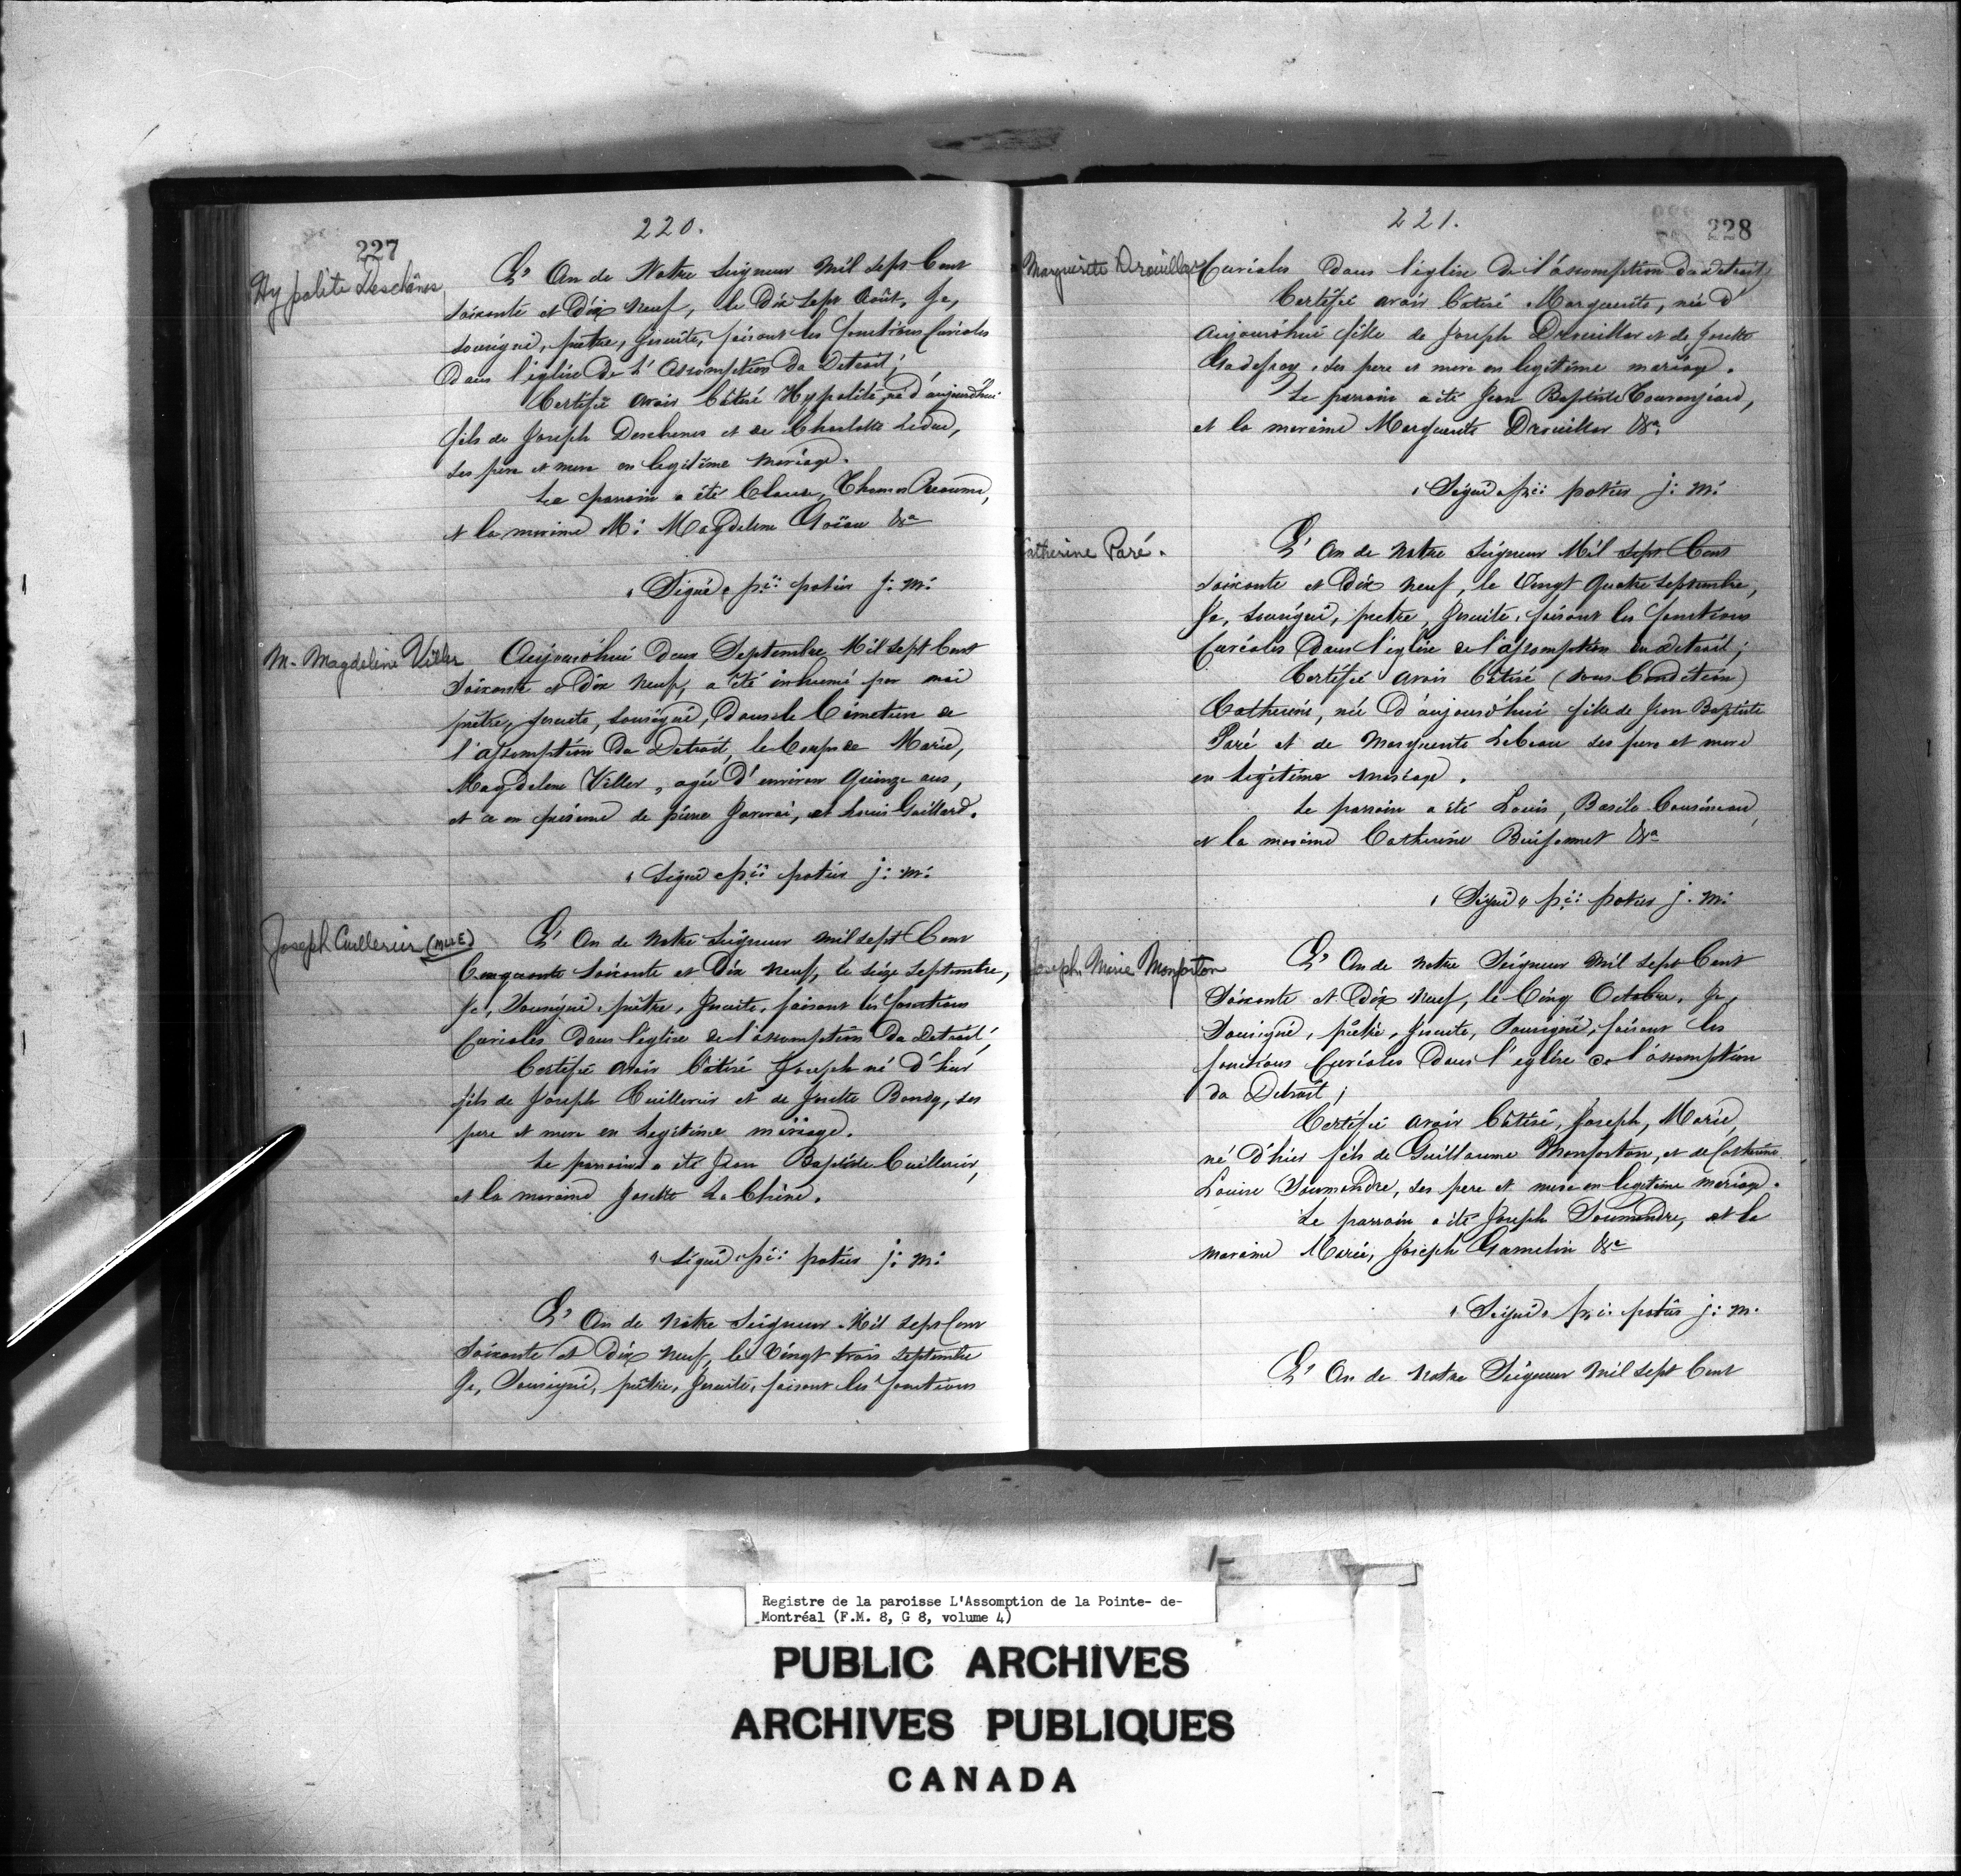 220.
227
Hypolite Deschênes
L' An de Notre Seigneur Mil Sept Cent
soixante et Dix Neuf, le Dix Sept Août, Je,
sousigné, prêtre, Jesuite, faisant les fonctions Curiales
Dans l'eglise De L' Assomption du Detroit;
Certifié avoir bâtisé Hypolité, né d'aujourd'hui
fils de Joseph Deschenes et de Charlotte Leduc,
ses pere et mere en legitime mariage.
Le parrain a été Claude, Thomas Reaume,
et la maraine M: Magdelene Goïau &a
Signé, p:i: potier j: m:
M. Magdeleine Viller
Aujourd'hui Deux Septembre Mil Sept Cent
Soixante et Dix Neuf, a été inhumé par moi
prêtre, Jesuite, sousigné, Dans le Cimetiere de
l'assomption Du Detroit, le Corps de Marie,
Magdelene Viller, agée D'environ Quinze ans,
et ce en présence de pierre Javerai, et Louis Gaillard.
Signé p:i: potier j: m:
Joseph Cuillerier (MLLE)
L' An de Notre Seigneur Mil Sept Cent
Cinquante Soixante et Dix Neuf, le seize Septembre,
Je, Sousigné, prêtre, Jesuite, faisant les fonctions
Curiales Dans l'eglise de l'assomption Du Detroit;
Certifié avoir bâtisé Joseph né d'hier
fils de Joseph Cuillerier et de Josette Bondy, ses
pere et mere en Legitime mariage.
Le parrain a été Jean Baptiste Cuillerier,
et la maraine Josette La Chine.
Signé p:i: potier j: m:
L' An de Notre Seigneur Mil Sept Cent
Soixante et Dix Neuf, le Vingt trois Septembre
Je, Sousigné, prêtre, Jesuite, faisant les fonctions
221.
228
Marguerite Drouillar
Curiales Dans l'eglise De l'assomption du Detroit;
Certifié avoir bâtisé Marguerite, née d'
aujourd'hui fille de Joseph Drouillar et de Josette
Gadefroy, ses pere et mere en legitime mariage.
Le parrain a été Jean Baptiste Tourangeau,
et la maraine Marguerite Drouillar &a.
Signé p:i: potier j: m:
Catherine Paré.
L' An de Notre Seigneur Mil Sept Cent
Soixante et Dix Neuf, le Vingt Quatre Septembre,
Je, Sousigné, prêtre, Jesuite, faisant les fonctions
Curiales Dans l'eglise de l'assomption du Detroit;
Certifié avoir bâtisé (sous Condition)
Catherine, née d'aujourd'hui fille de Jean Baptiste
Paré et de Marguerite Lebeau ses pere et mere
en Legitime mariage.
Le parrain a été Louis, Basile Cousineau,
et la maraine Catherine Buissonnet &a
Signé p:i: potier j. m:
Joseph Marie Monforton
L' An de Notre Seigneur Mil Sept Cent
Soixante et Dix Neuf, le Cinq Octobre, Je,
Sousigné, prêtre, Jesuite, Sousigné, faisant les
fonctions Curiales Dans l'eglise de l'assomption
du Detroit;
Certifié avoir Bâtisé, Joseph, Marie,
né D'hier fils de Guillaume Monforton, et de Catherine
Louise Soumendre, ses pere et mere en legitime mariage.
Le parrain a été Joseph Soumendre, et la
maraine Marie, Joseph Gamelin &a
Signé p:i: potier j: m.
L' An de Notre Seigneur Mil Sept Cent
Registre de la paroisse L'Assomption de la Pointe- de-
Montréal (F.M. 8, G 8, volume 4)
PUBLIC ARCHIVES
ARCHIVES PUBLIQUES
CANADA